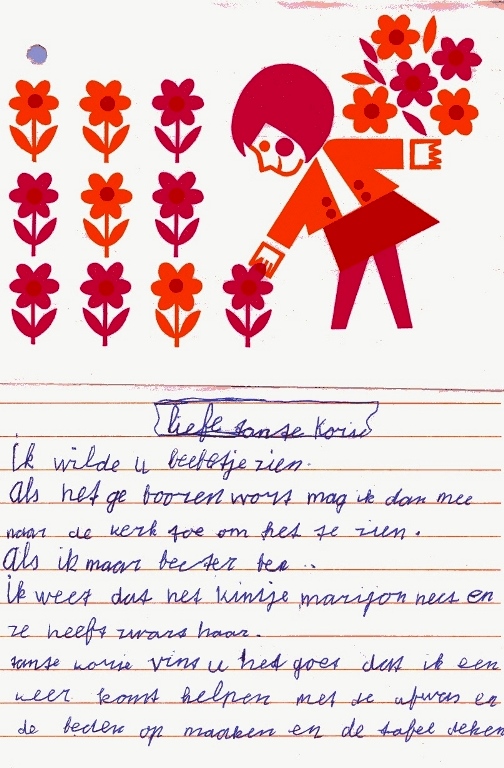 liefe tante Korie
Ik wilde u beebetje zien.
Als het ge booren wort mag ik dan mee
naar de kerk toe om het te zien.
Als ik maar beeter ben..
ik weet dat het kintje marijon heet en
ze heeft zwart haar.
tante korie vint u het goet dat ik een
keer komt helpen met de afwas en
de bedden op maaken en de tafel deken